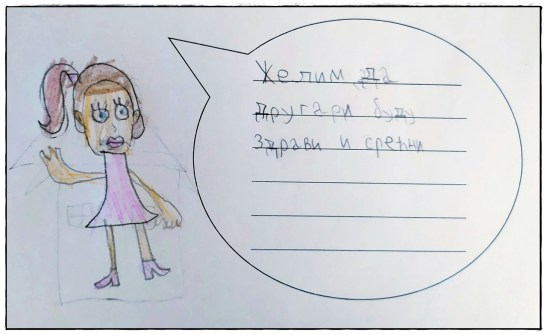 Желим да
другари буду
здрави и срећни